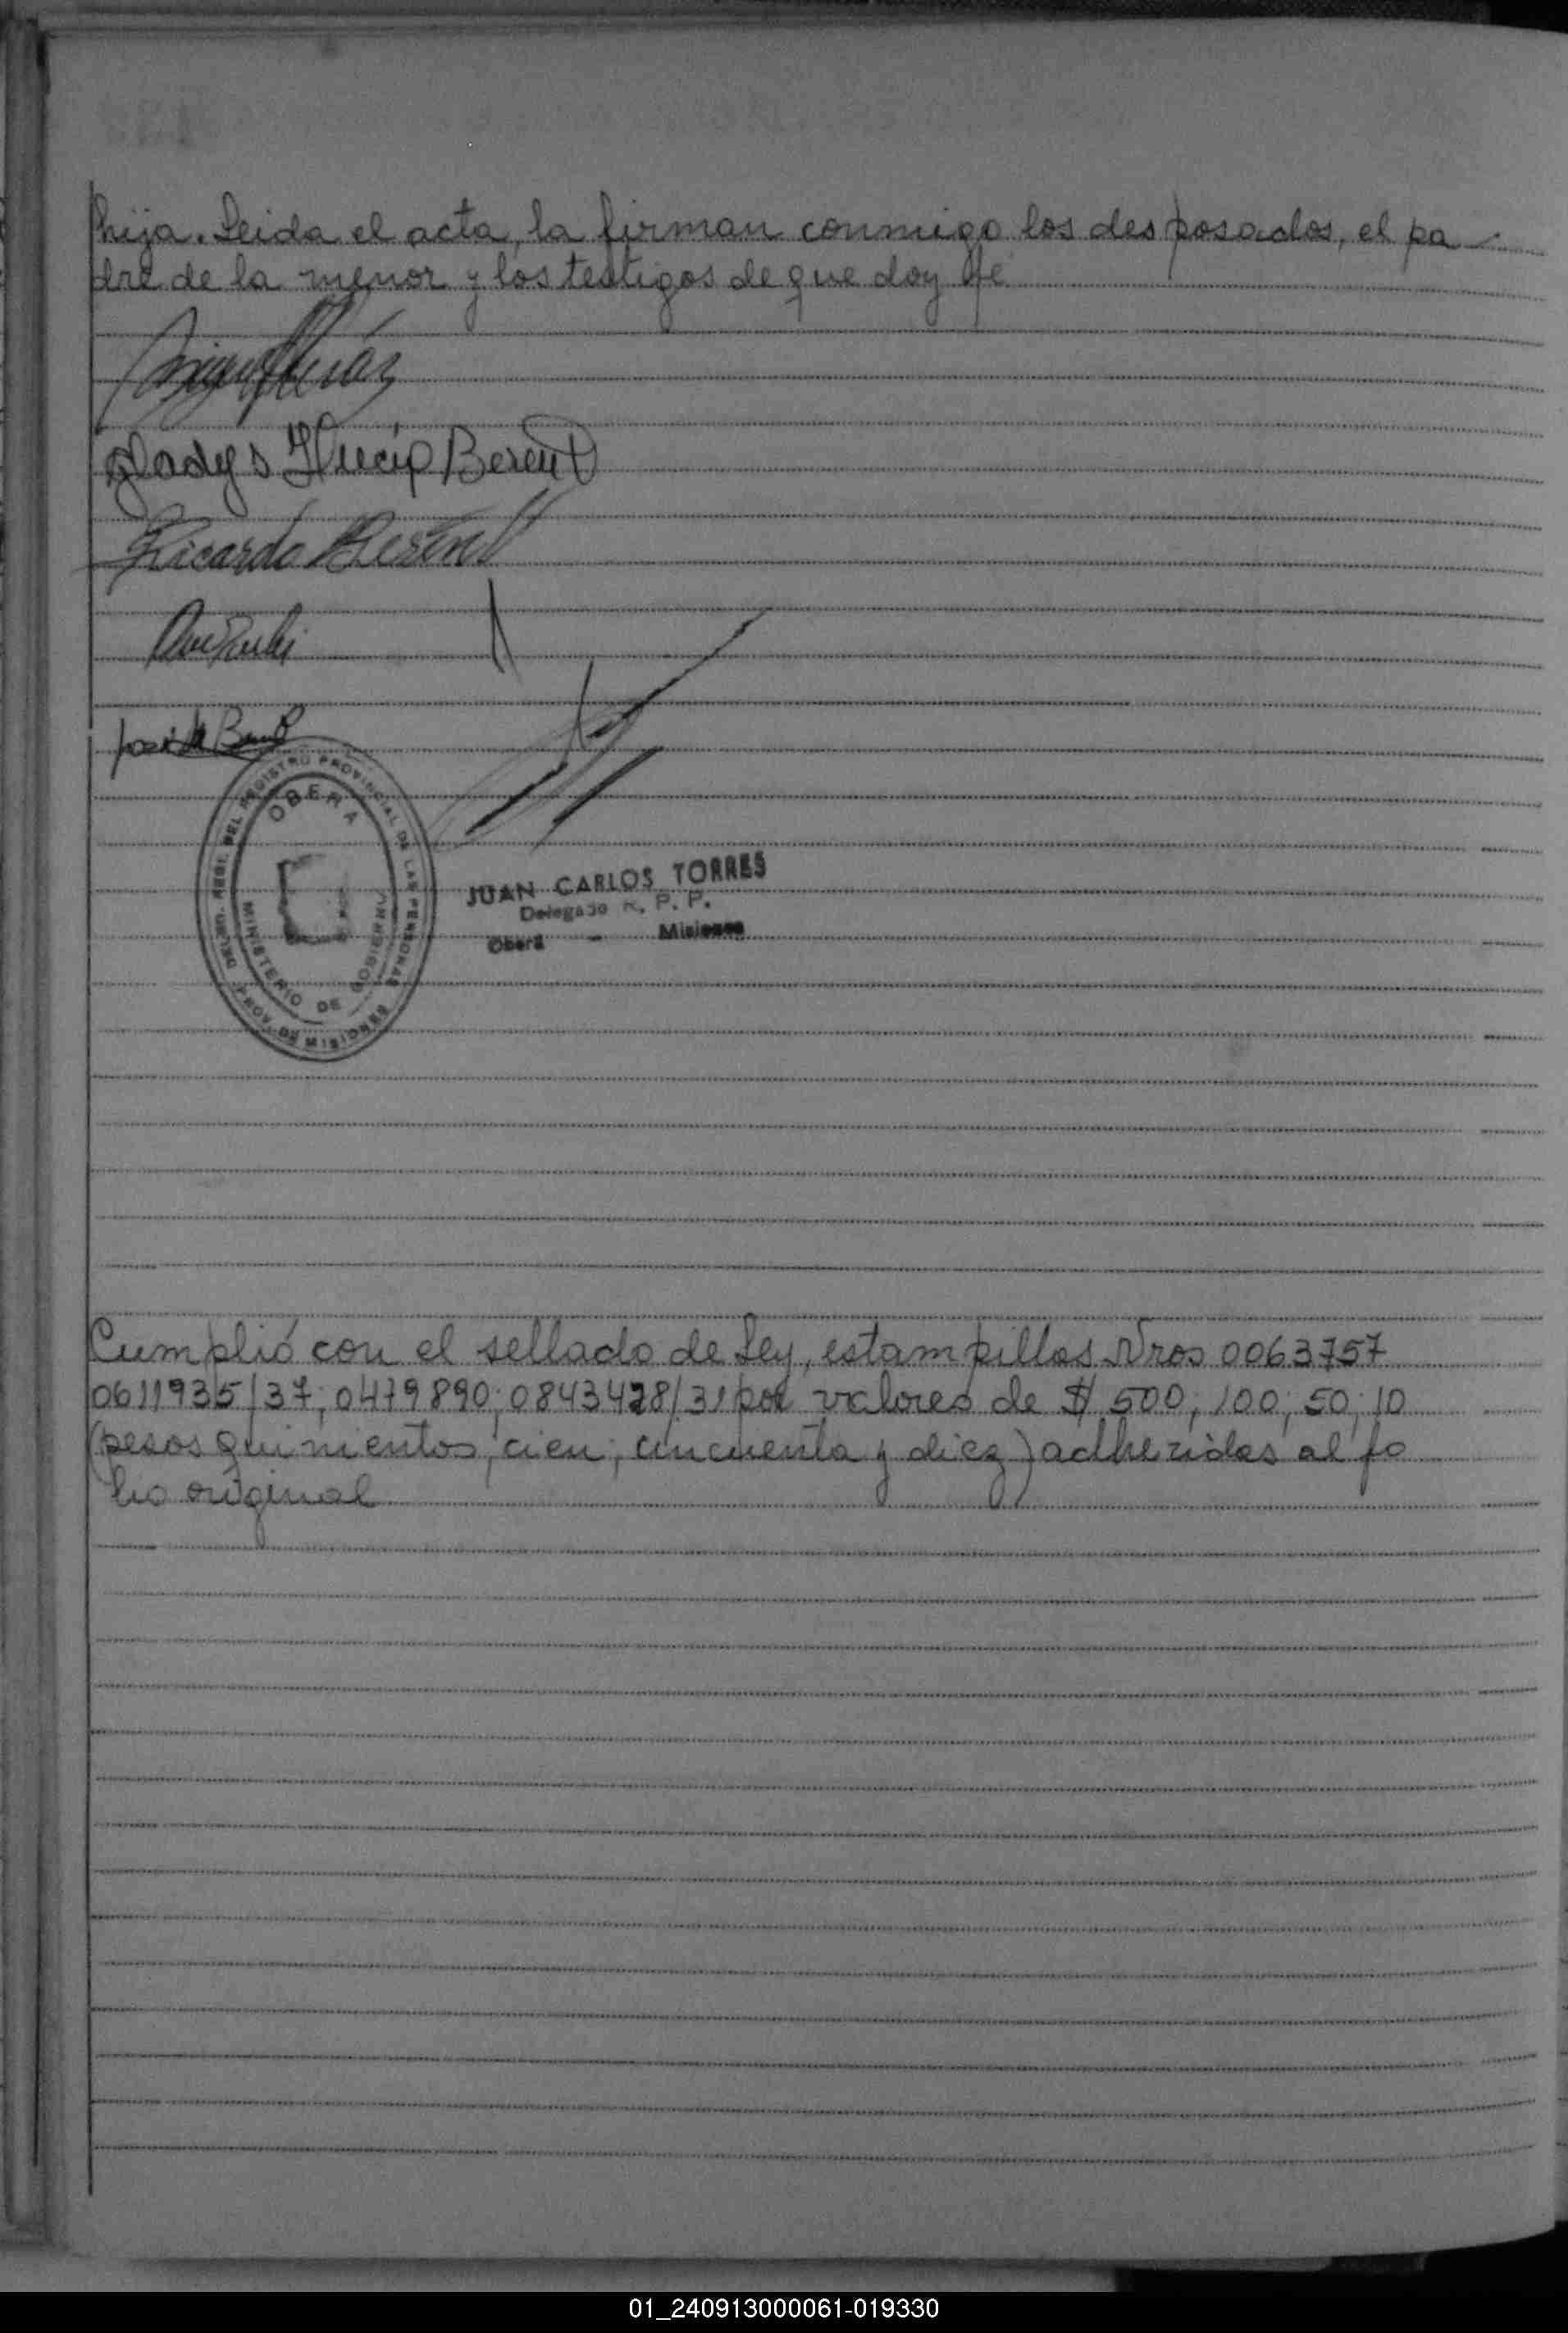 hija. Leida el acta, la firman conmigo los desposados, el pa-
dre de la menor y los testigos de que doy fe
Gladys Berent
Ricardo Berent
DELEG. REGI. DEL REGISTRO PROVINCIAL DE LAS PERSONAS
OBERA
MINISTERIO DE GOBIERNO
PROV. DE MISIONES
JUAN CARLOS TORRES
Delegado R. P. P.
Oberá - Misiones
Cumplió con el sellado de Ley, estampillas Nros 0063757
0611935/37; 0479890; 0843428/31 por valores de $ 500; 100; 50; 10
(pesos quinientos; cien; cincuenta y diez) adheridas al fo
lio original
01_240913000061-019330